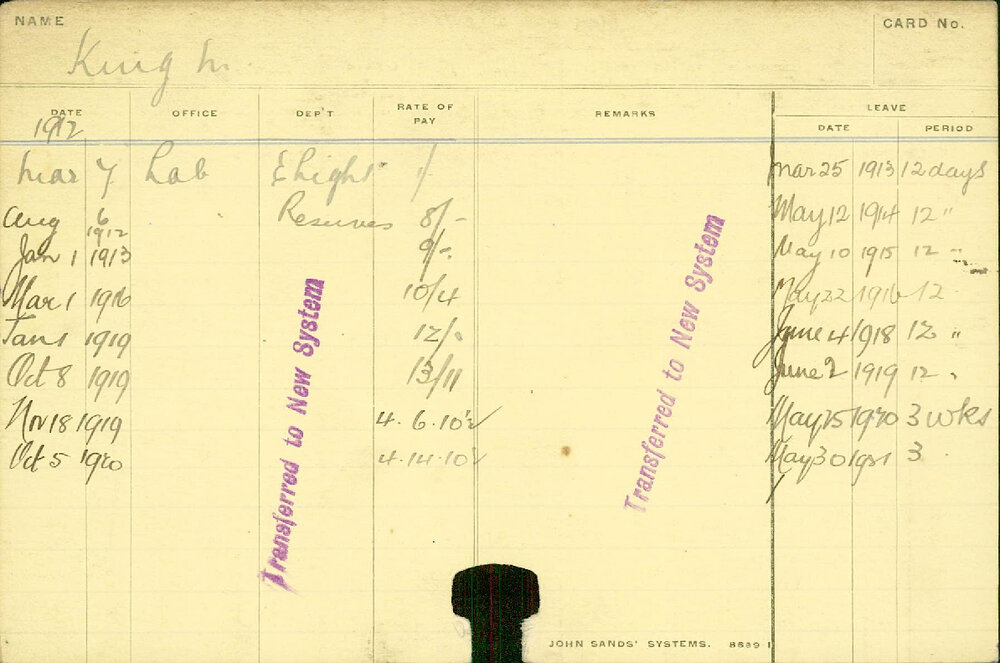 NAME
CARD No.
King M.
DATE OFFICE DEP'T RATE OF PAY REMARKS LEAVE
DATE PERIOD
1912
Mar 7 Lab E Light Mar 25 1913 12 days
Aug 6 1912 Reserves 8/- May 12 1914 12 "
Jan 1 1913 9/- May 10 1915 12 "
Mar 1 1916 10/4 May 22 1916 12
Jan 1 1919 12/- June 4 1918 12 "
Oct 8 1919 13/11 June 2 1919 12 "
Nov 18 1919 4.6.10½ May 25 1920 3 wks
Oct 5 1920 4.14.10½ May 30 1921 3
Transferred to New System
Transferred to New System
JOHN SANDS' SYSTEMS. 8689